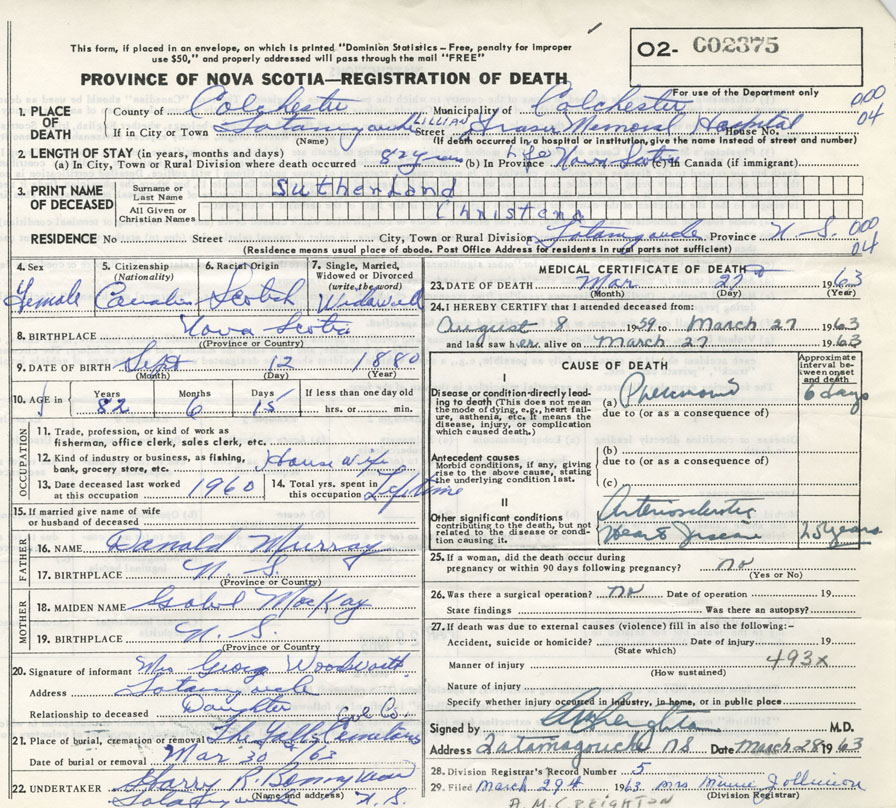 This form, if placed in an envelope, on which is printed "Dominion Statistics – Free, penalty for improper
use $50," and properly addressed will pass through the mail "FREE"
O2- C02375
PROVINCE OF NOVA SCOTIA—REGISTRATION OF DEATH
For use of the Department only
1. PLACE OF DEATH
County of Colchester Municipality of Colchester 000
If in City or Town Tatamagouche Street LILLIAN Fraser Memorial Hospital House No. 04
(Name) (If death occurred in a hospital or institution, give the name instead of street and number)
2. LENGTH OF STAY (in years, months and days)
(a) In City, Town or Rural Division where death occurred 82 years (b) In Province Life Nova Scotia (c) In Canada (if immigrant)
3. PRINT NAME OF DECEASED
Surname or Last Name Sutherland
All Given or Christian Names Christena
RESIDENCE No Street City, Town or Rural Division Tatamagouche Province N.S. 000
04
(Residence means usual place of abode. Post Office Address for residents in rural parts not sufficient)
4. Sex Female
5. Citizenship (Nationality) Canadian
6. Racial Origin Scotch
7. Single, Married, Widowed or Divorced (write the word) Widowed
8. BIRTHPLACE Nova Scotia
(Province or Country)
9. DATE OF BIRTH Sept 12 1880
(Month) (Day) (Year)
10. AGE in Years 82 Months 6 Days 15 If less than one day old hrs. or min.
OCCUPATION
11. Trade, profession, or kind of work as
fisherman, office clerk, sales clerk, etc.
12. Kind of industry or business, as fishing,
bank, grocery store, etc. House wife
13. Date deceased last worked at this occupation 1960
14. Total yrs. spent in this occupation Lifetime
15. If married give name of wife
or husband of deceased
FATHER
16. NAME Danald Murray
17. BIRTHPLACE N.S.
(Province or Country)
MOTHER
18. MAIDEN NAME Isabel MacKay
19. BIRTHPLACE N.S.
(Province or Country)
20. Signature of informant Mrs Georg Woodworth
Address Tatamagouche
Relationship to deceased Daughter
Col. Co.
21. Place of burial, cremation or removal The Falls Cemetery
Date of burial or removal Mar 30 '63
22. UNDERTAKER Harry R. Bonnyman
Tatamagouche N.S.
(Name and address)
MEDICAL CERTIFICATE OF DEATH
23. DATE OF DEATH Mar 27 1963
(Month) (Day) (Year)
24. I HEREBY CERTIFY that I attended deceased from:
August 8 1959 to March 27 1963
and last saw her alive on March 27 1963
CAUSE OF DEATH
Approximate interval between onset and death
I
Disease or condition directly leading to death (This does not mean the mode of dying, e.g., heart failure, asthenia, etc. It means the disease, injury, or complication which caused death.)
(a) Pneumonia 6 days
due to (or as a consequence of)
Antecedent causes
Morbid conditions, if any, giving rise to the above cause, stating the underlying condition last.
(b)
due to (or as a consequence of)
(c)
II
Other significant conditions
contributing to the death, but not related to the disease or condition causing it.
Arteriosclerotic
Heart Disease 25 years
25. If a woman, did the death occur during
pregnancy or within 90 days following pregnancy? no
(Yes or No)
26. Was there a surgical operation? no Date of operation 19
State findings Was there an autopsy?
27. If death was due to external causes (violence) fill in also the following:–
Accident, suicide or homicide? Date of injury 19
(State which)
Manner of injury 493x
(How sustained)
Nature of injury
Specify whether injury occurred in industry, in home, or in public place
Signed by A M Creighton M.D.
Address Tatamagouche NS Date March 28 1963
28. Division Registrar's Record Number 5
29. Filed March 29th 1963. Mrs Minnie Johnson
(Division Registrar)
A.M. CREIGHTON